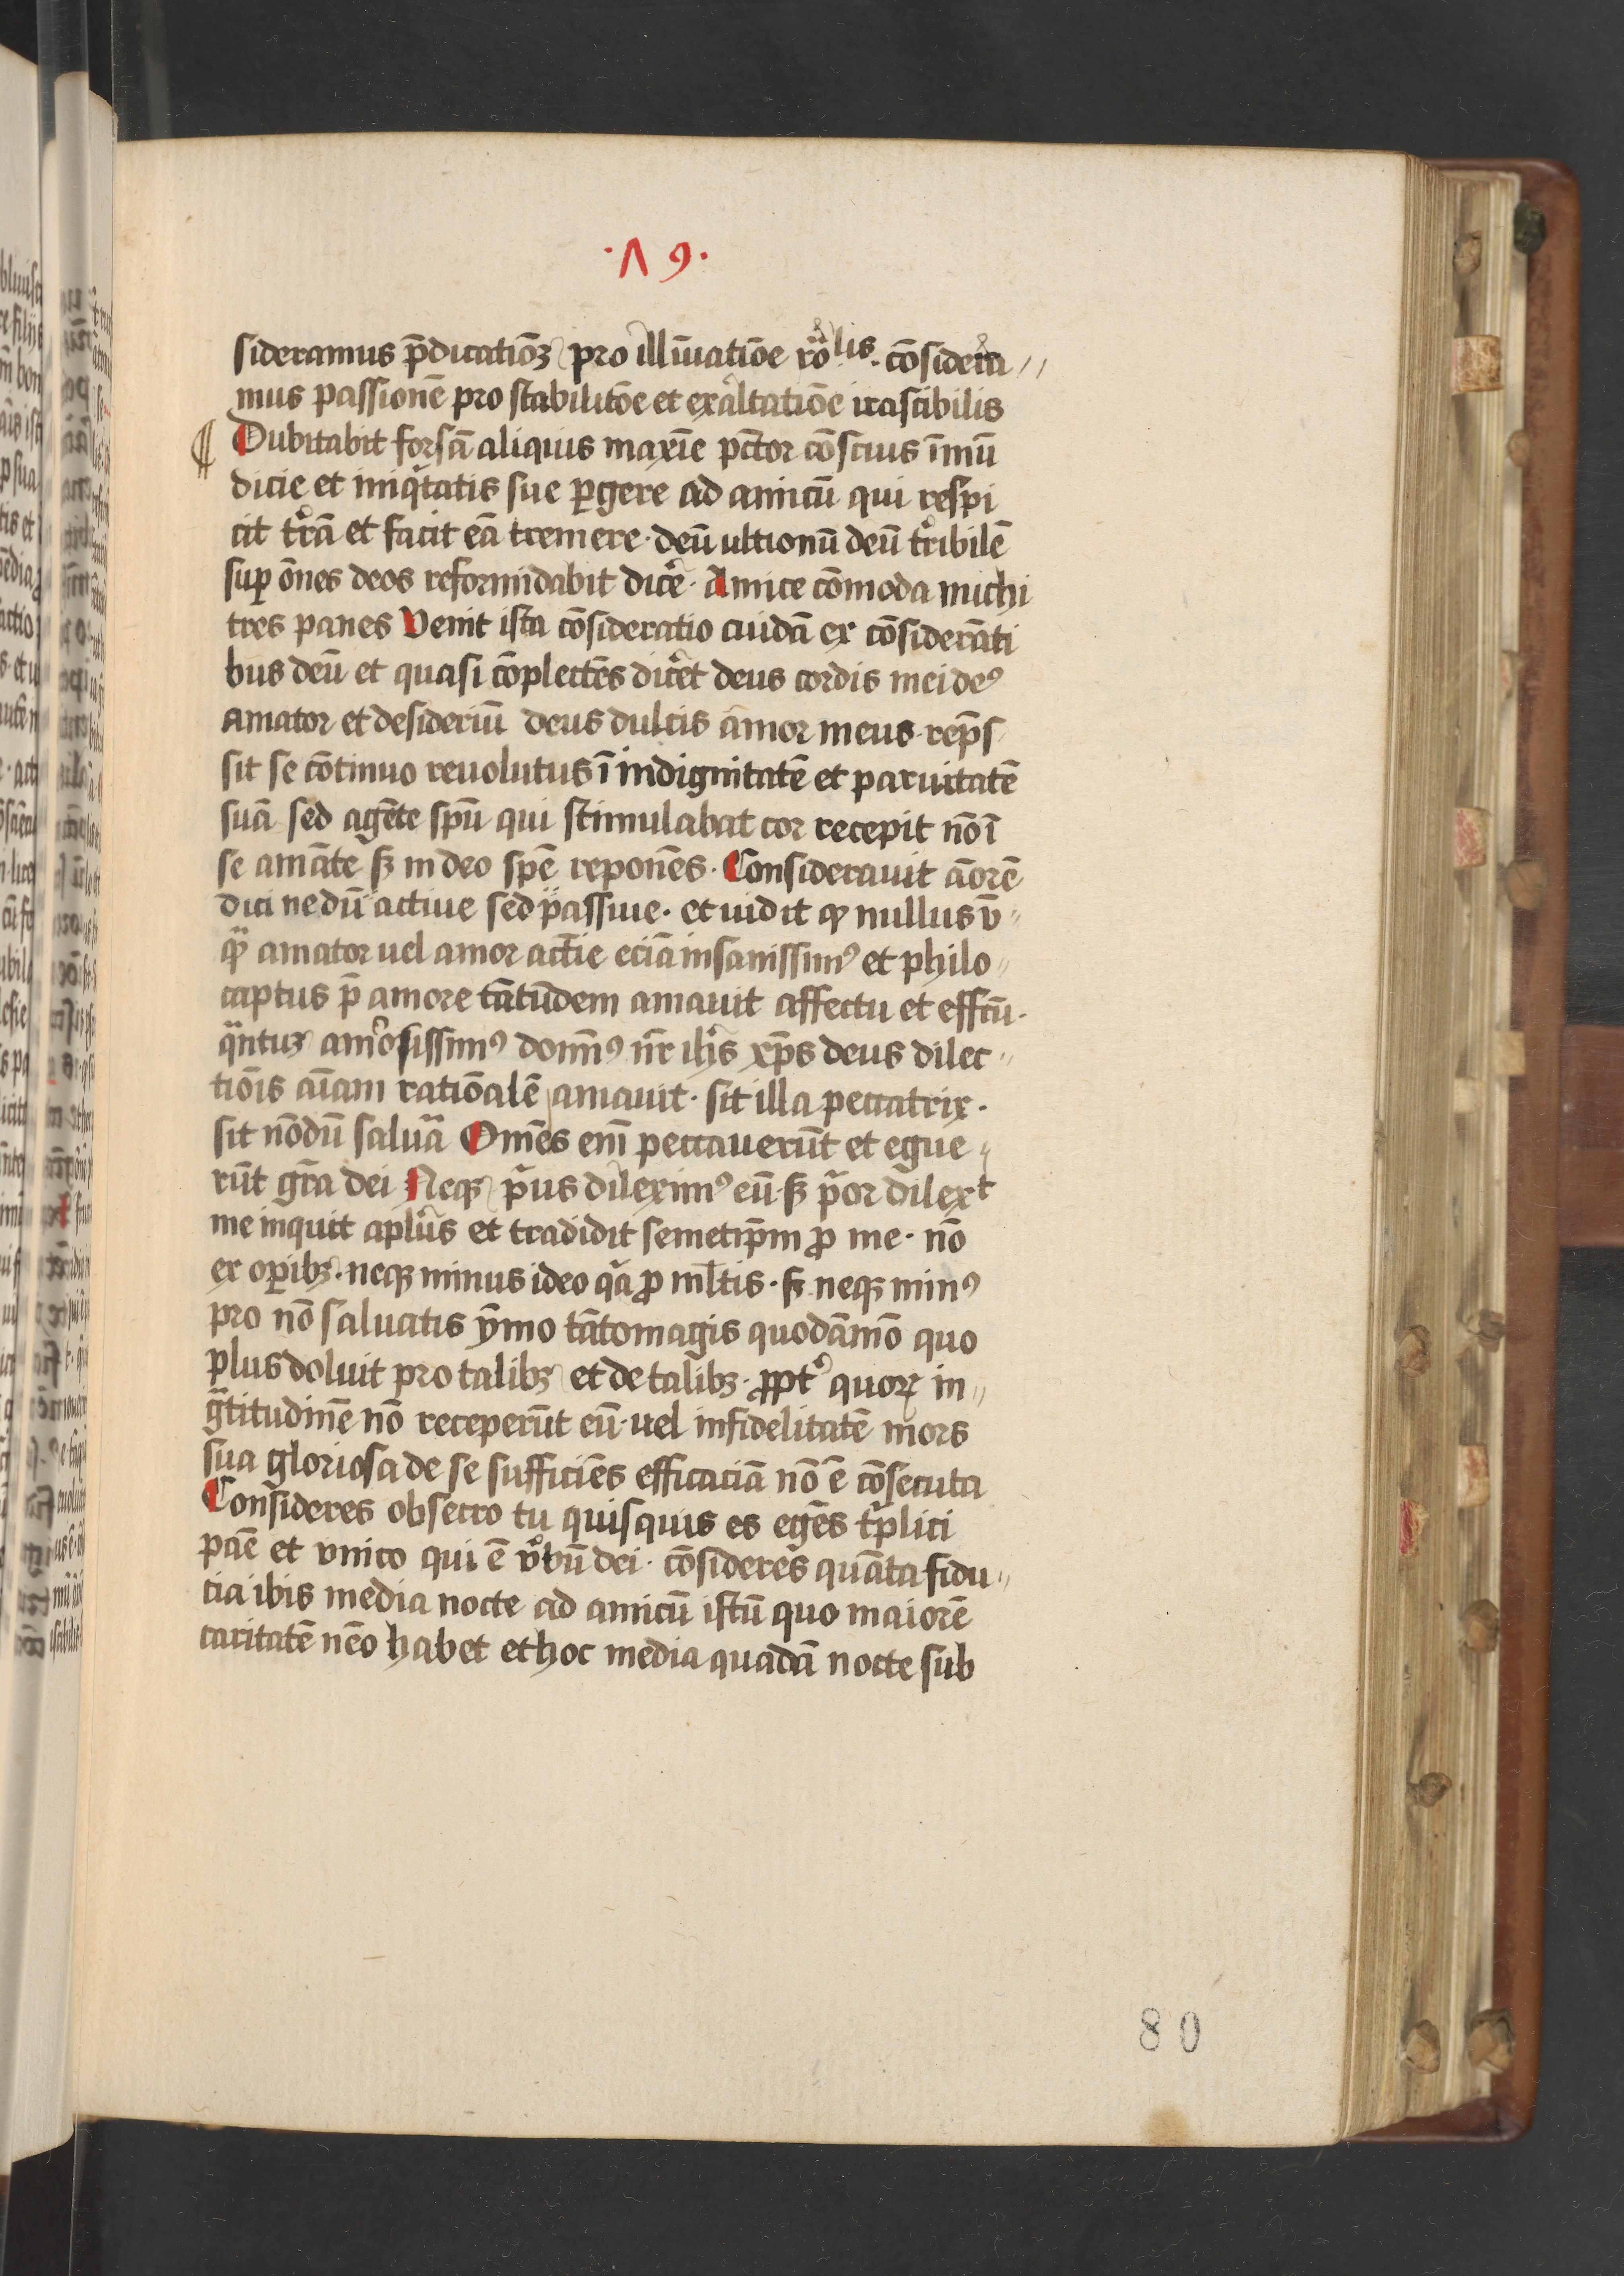 ·Λ 9·
sideramus p̄dicatiōꝫ pro illūīatiōe rōlis. cōsidera
mus passionē pro stabilitōe et exaltatiōe irascibilis
¶ Dubitabit forsā aliquis maxīe pc̄tor cōscius īmū
dicie et iniqͣtatis sue ꝑgere ad amicū qui respi
cit tr̄ā et facit eā tremere· deū ultionū deū tr̄ibilē
suꝑ ōnes deos reformidabit dicē· Amice cōmoda michi
tres panes Venit ista cōsideratio cuidā ex cōsiderāti
bus deū et quasi cōplectēs dic̄et deus cordis mei deꝰ
amator et desideriū deus dulcis amor meus· rep̄s
sit se cōtinuo reuolutus ī indignitatē et paruitatē
suā sed agēte spū qui stimulabat cor recepit nō ī
se amāte sꝫ in deo spē reponēs· Considerauit aōrē
dici nedū actiue sed passiue· et uidit ꝙ nullus ū
qͣꝫ amator uel amor actīe eciā insanissimꝰ et philo
captus p̄ amore tātūdem amauit affectu et effc̄u·
qͣntuꝫ amorosissimꝰ domīꝰ nr̄ ihs̄ xp̄s deus dilec
tiōis aīam rationalē amauit· sit illa peccatrix·
sit nōdū saluͣa Omēs em̄ peccauerūt et egue
rūt gr̄a dei Neqꝫ pͥus dileximꝰ eū· sꝫ pͥor dilexᵗ
me inquit aplūs et tradidit semetip̄m ꝓ me· nō
ex oꝑibꝫ· neqꝫ minus ideo qͣ ꝓ ml̄tis· sꝫ neqꝫ minꝰ
pro nō saluatis ȳmo tātomagis quodāmō quo
plus doluit pro talibꝫ et de talibꝫ· ꝓpt̉ quoꝝ in
gͣtitudinē nō receperūt eū· uel infidelitatē mors
sua gloriosa de se sufficiēs efficaciā nō ē cōsecuta
Consideres obsecro tu quisquis es egēs tͥplici
pāe et vnico qui ē v̉bū dei· cōsideres quāta fidu
cia ibis media nocte ad amicū istū quo maiorē
caritatē nēo habet et hoc media quadā nocte sub
80